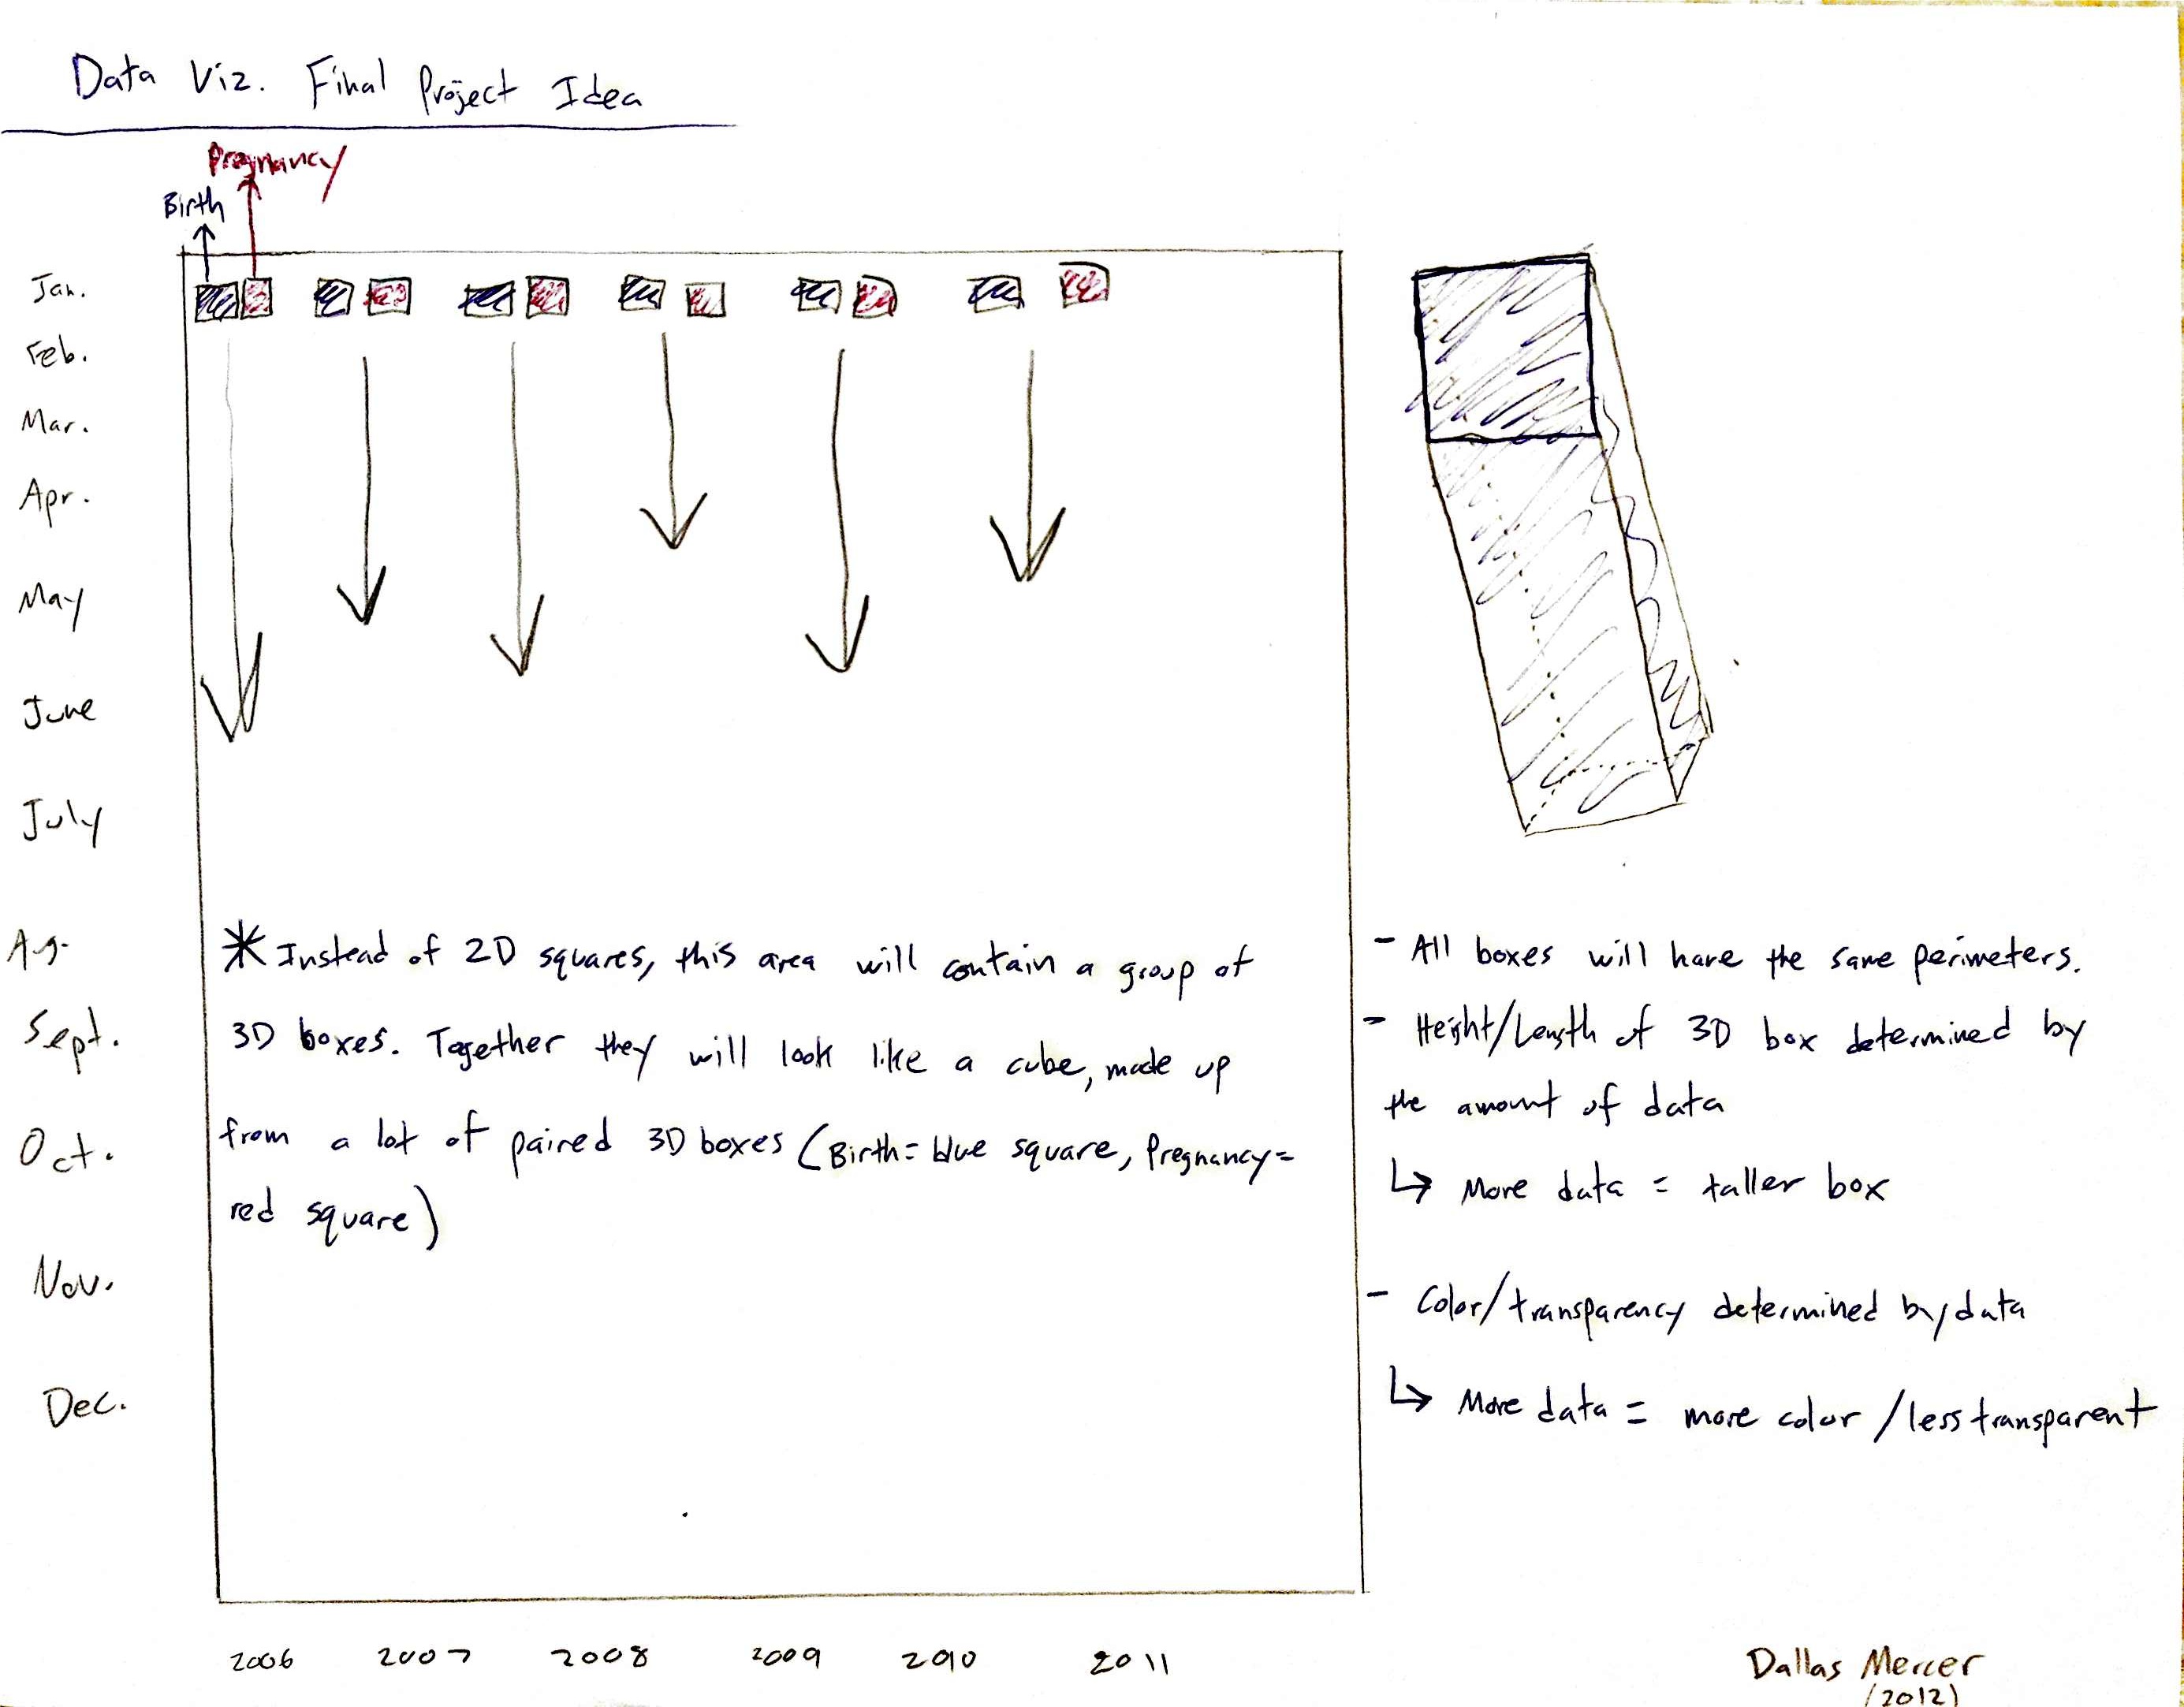 Data Viz. Final Project Idea
Pregnancy
Birth
Jan.
Feb.
Mar.
Apr.
May
June
July
Aug.
Sept.
Oct.
Nov.
Dec.
* Instead of 2D squares, this area will contain a group of
3D boxes. Together they will look like a cube, made up
from a lot of paired 3D boxes (Birth = blue square, Pregnancy =
red square)
- All boxes will have the same perimeters.
- Height/Length of 3D box determined by
the amount of data
↳ More data = taller box
- Color/transparency determined by data
↳ More data = more color / less transparent
2006 2007 2008 2009 2010 2011
Dallas Mercer
(2012)